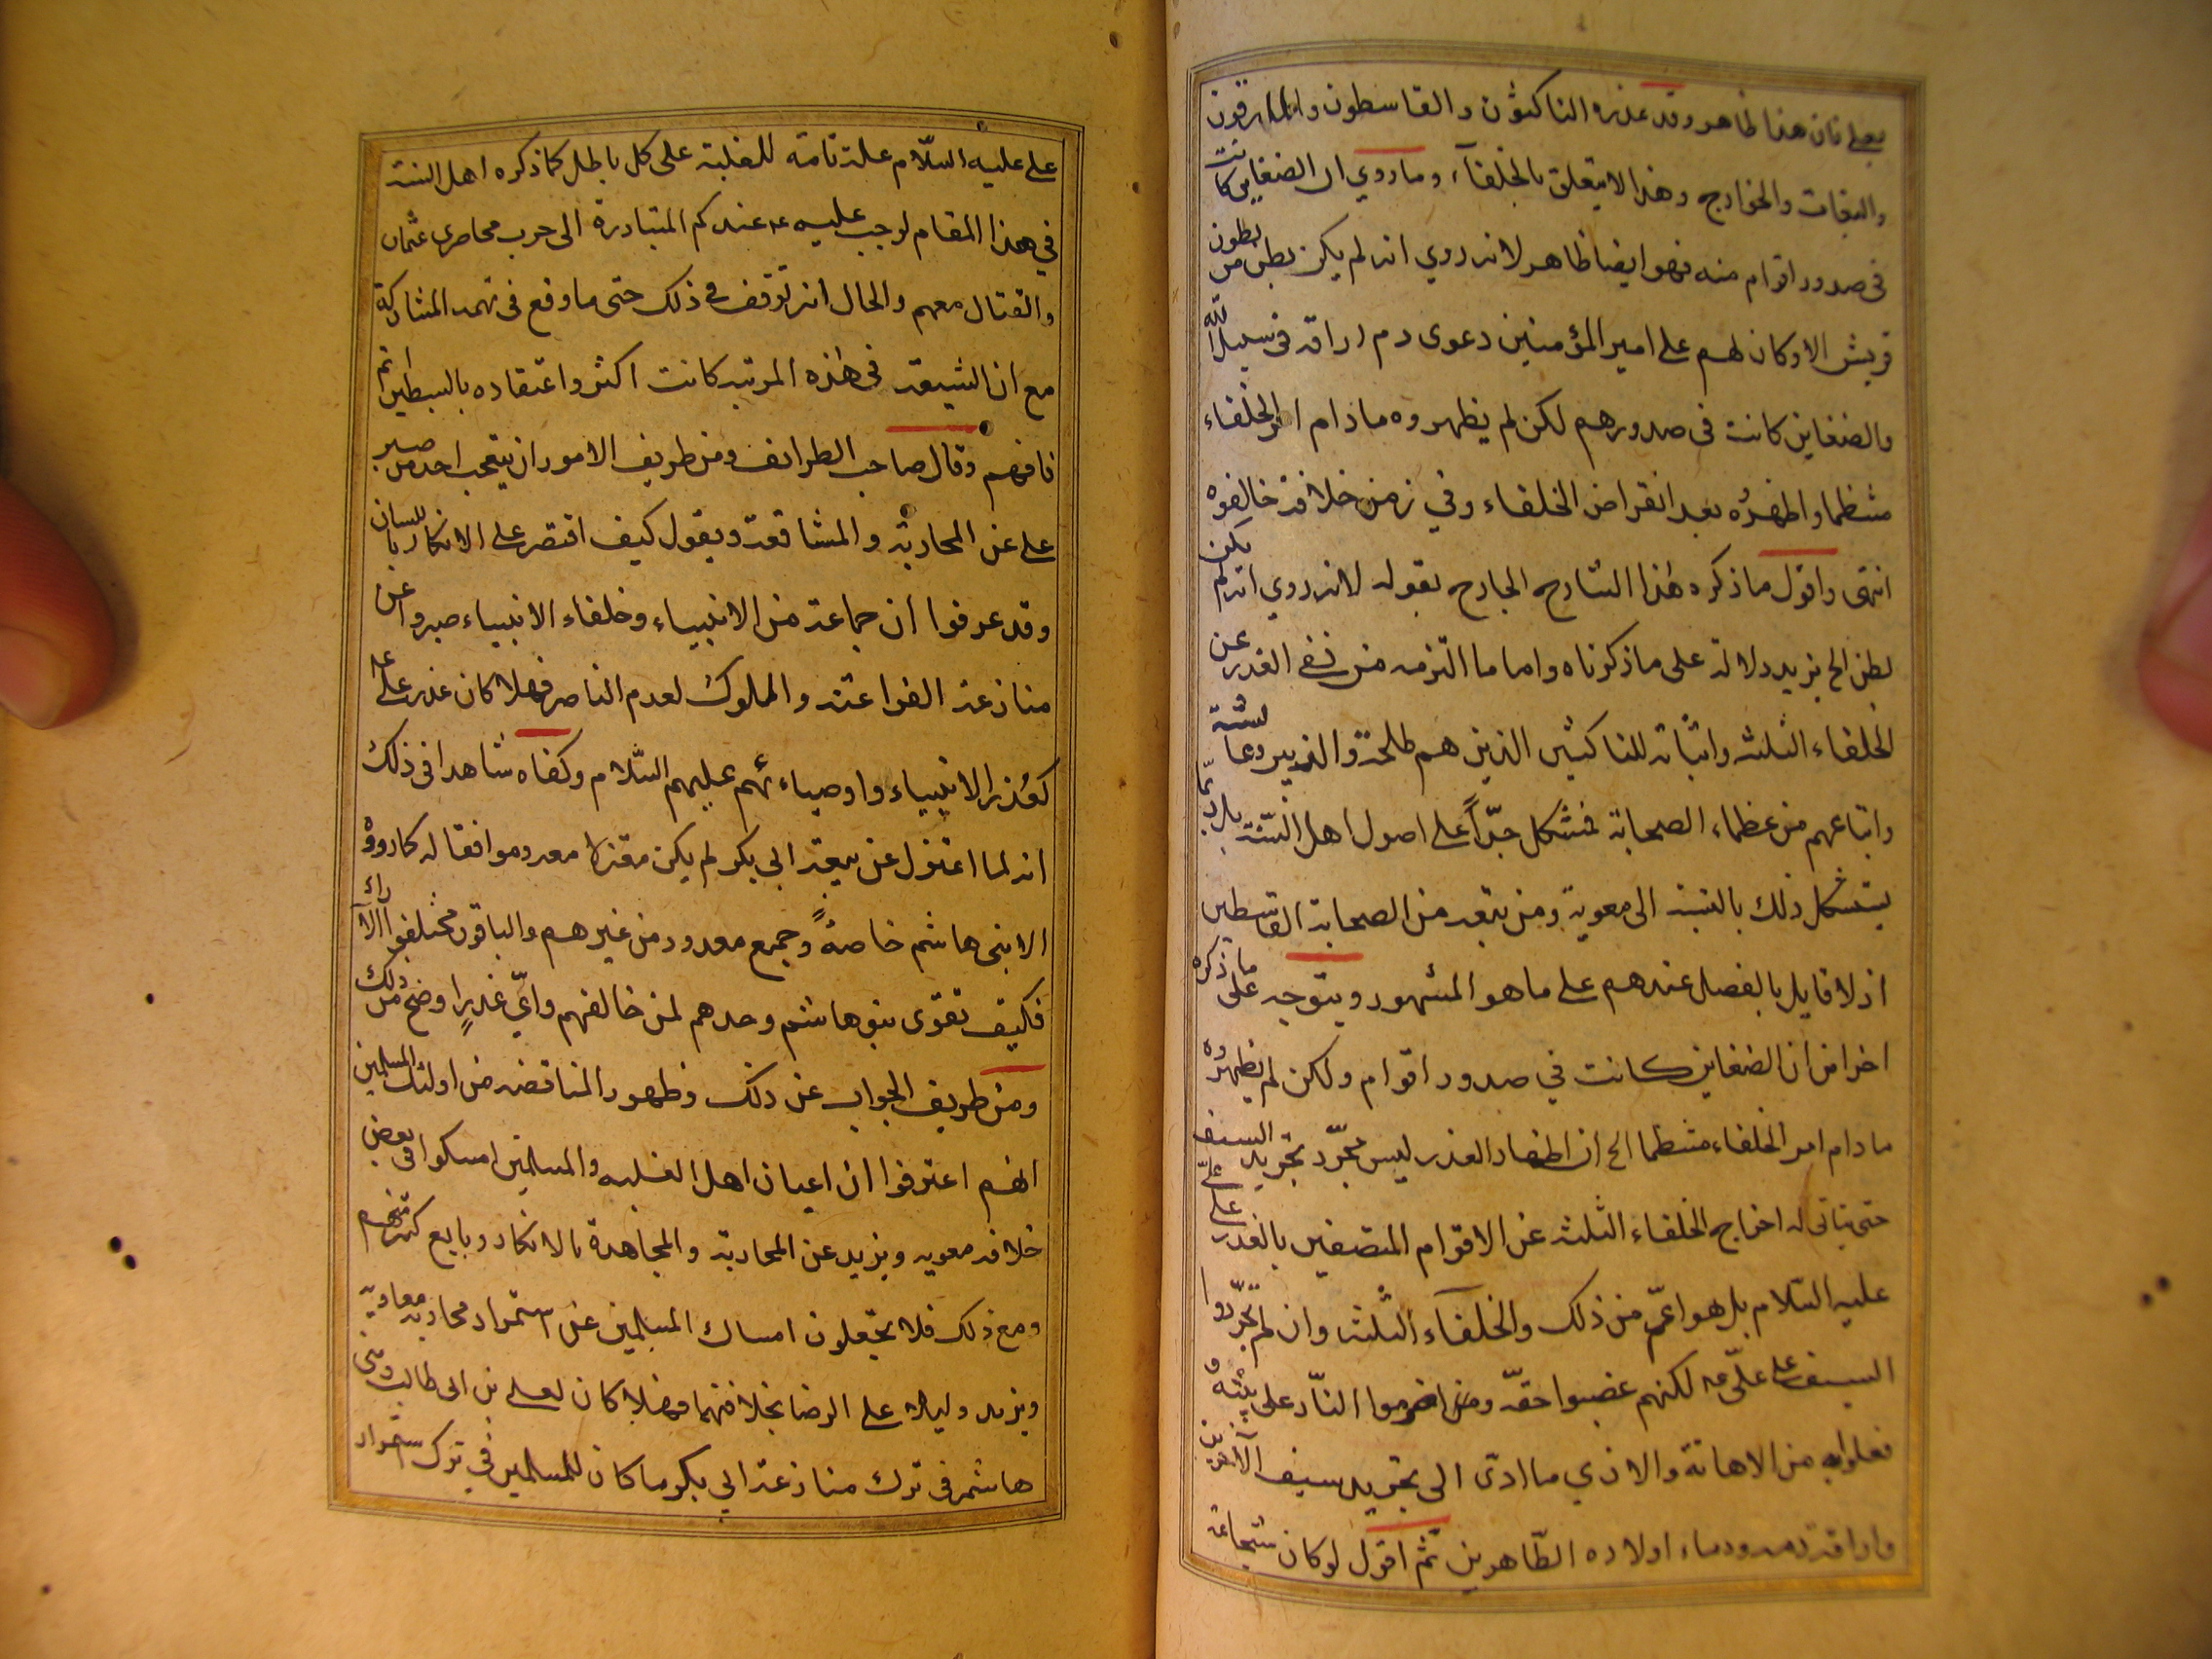 بعلي فان هذا ظاهر وقد غدره الناكثون والقاسطون والمارقون
والبغات والخوارج وهذا لا يتعلق بالخلفآء وما روي ان الضغاين كانت
في صدور اقوام منه فهو ايضا ظاهر لانه روي انه لم يكن بطن من بطون
قريش الا وكان لهم على امير المؤمنين دعوى دم اراقه في سبيل الله
والضغاين كانت في صدورهم لكن لم يظهروه مادام امر الخلفاء
منتظما واظهروه بعد انقراض الخلفاء وفي زمن خلافته خالفوه
انتهى واقول ما ذكره هذا الشارح الجارح بقوله لانه روي انه لم يكن
بطن الخ يزيد دلالة على ما ذكرناه واما ما التزمه من نفي الغدر عن
الخلفاء الثلثه واثباته للناكثين الذين هم طلحة والزبير وعايشة
واتباعهم من عظماء الصحابة فمشكل جدّاً على اصول اهل السّنة بل ربّما
يستشكل ذلك بالنسبة الى معوية ومن تبعه من الصحابة القاسطين
اذ لا قايل بالفصل عندهم على ما هو المشهور ويتوجه على ما ذكره
اخرا من ان الضغاين كانت في صدور اقوام ولكن لم يظهروه
مادام امر الخلفاء منتظما الخ ان اظهار الغدر ليس مجرّد تجريد السيف
حتى يتاتى له اخراج الخلفاء الثلثه عن الاقوام المتصفين بالغدر على عليّ
عليه السّلام بل هو اعمّ من ذلك والخلفآء الثلثه وان لم يجرّدوا
السيف على عليّ عه لكنهم غصبوا حقّه و اضرموا النّار على بيته و
فعلوابه من الاهانة والاذي ما ادّى الى تجريد سيف الآخرين
واراقة دمه ودماء اولاده الطّاهرين ثمّ اقول لو كان شجاعة
علي عليه السّلام علة تامة للغلبة على كل باطل كما ذكره اهل السنة
في هذا المقام لوجب عليه عه عندكم المبتادرة الى حرب محاصري عثمان
والقتال معهم والحال انه توقف في ذلك حتى ما وقع في تهمه المشاركة
مع ان الشيعة في هذه المرتبه كانت اكثر واعتقاده بالسبطين اتم
فافهم وقال صاحب الطرائف ومن طريف الامور ان يتعجب احد من صبر
علي عن المحاربة والمشاققة ويقول كيف اقتصر على الانكار باللسان
وقد عرفوا ان جماعة من الانبياء وخلفاء الانبياء صبروا عن
منازعة الفراعنه والملوك لعدم الناصر فهلا كان عذر علي عه
كعُذر الانبياء واوصيائهم عليهم السّلام وكفاه شاهدا في ذلك
انه لما اعتزل عن بيعة ابي بكر لم يكن معه موافقا له كما رووْ
الا بني هاشم خاصةً وجميع معدود من غيرهم والباقون مختلفوا الآراء
فكيف تقوّى بنو هاشم وحدهم لمن خالفهم وايّ عذرٍ اوضح من ذلك
ومن طريف الجواب عن ذلك وظهور المناقضه من اولئك المسلمين
انهم اعترفوا ان اعيان اهل الغلبه والمسلمين امسكوا في بعض
خلافه معويه ويزيد عن المحاربة والمجاهدة بالانكار وبايع كثير منهم
ومع ذلك فلا يجعلون امساك المسلمين عن استمرار محاربة معاوية
ويزيد دليلا على الرضا بخلافتهما فهلا كان لعلي بن ابى طالب وبني
هاشم في ترك منازعة ابي بكر ما كان للمسلمين في ترك استمرار